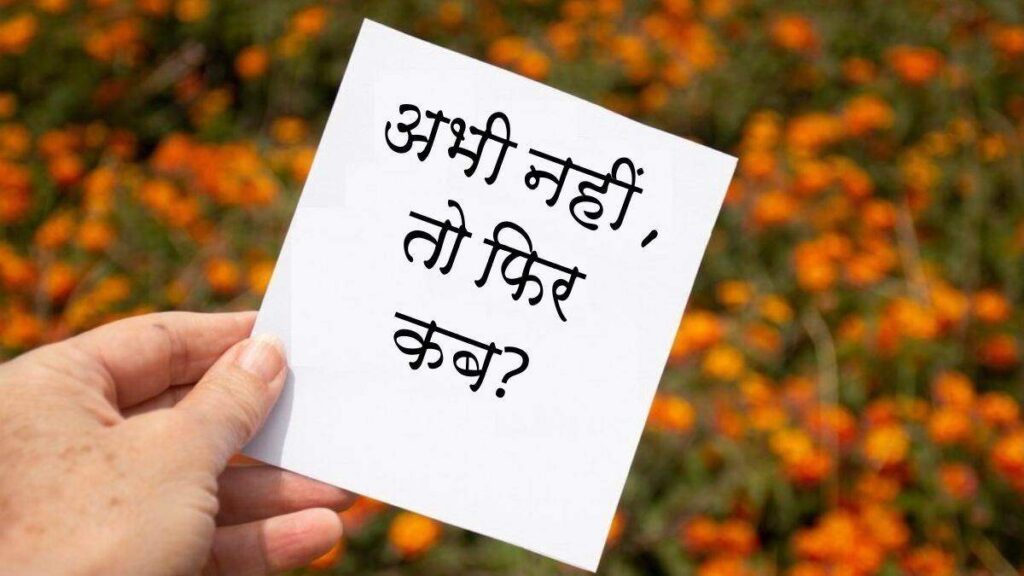 अभी नहीं ,
तो फिर
कब?